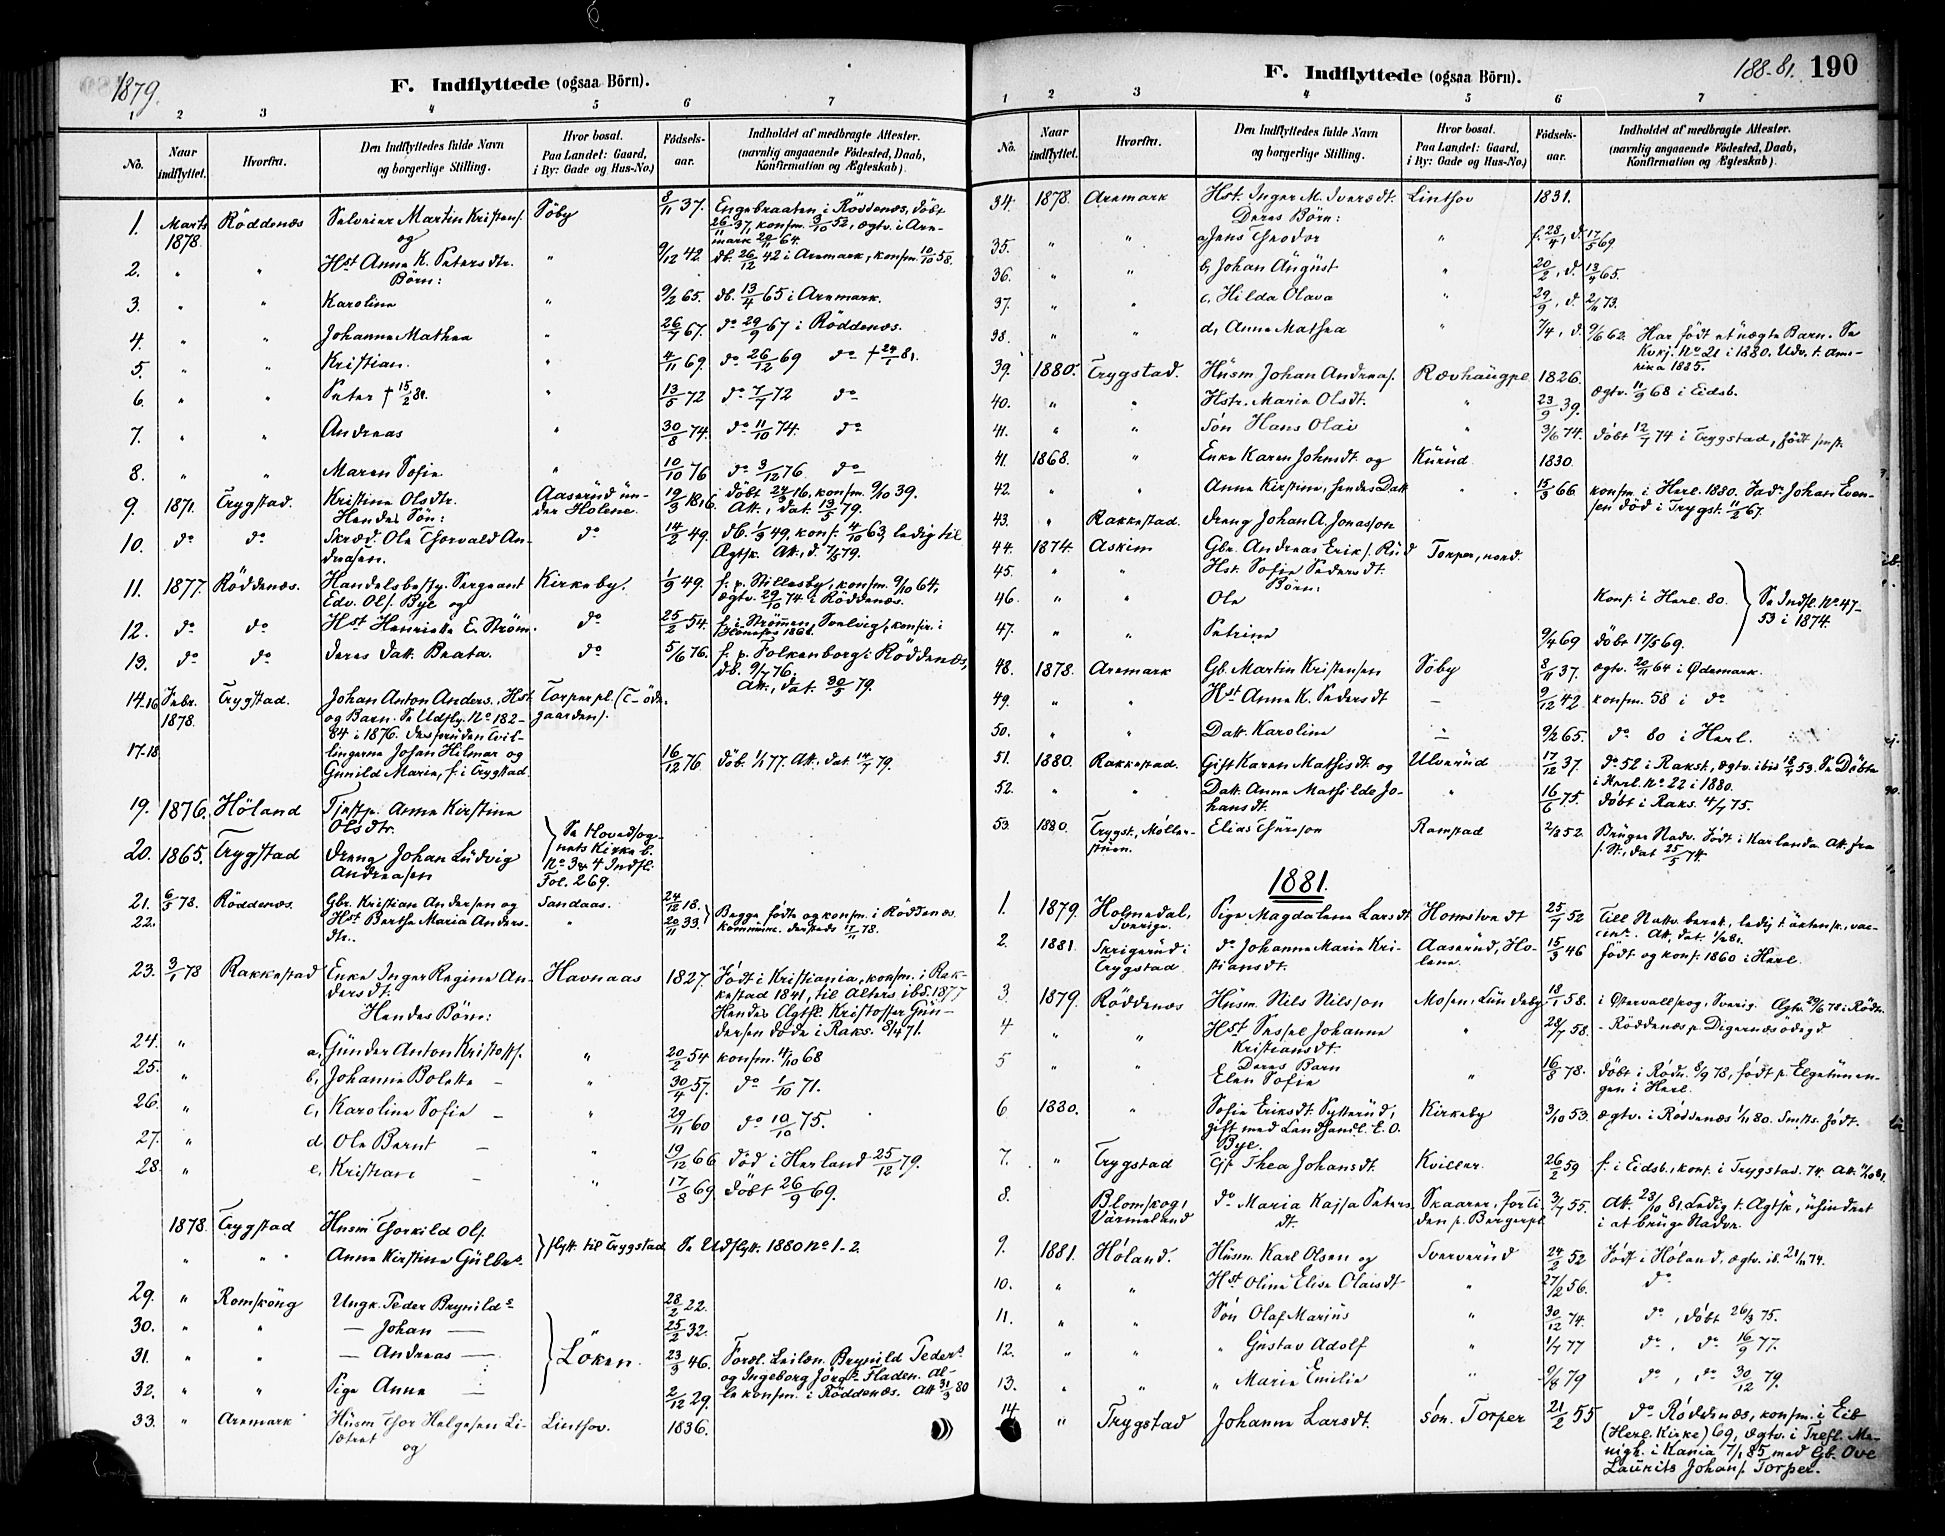 1879.
F. Indflyttede (ogsaa Börn).
1 2 3 4 5 6 7
No. Naar indflyttet. Hvorfra. Den Indflyttedes fulde Navn og borgerlige Stilling. Hvor bosat. Paa Landet: Gaard, i By: Gade og Hus-No.) Fødsels-aar. Indholdet af medbragte Attester. (navnlig angaaende Födested, Daab, Konfirmation og Ægteskab).
1. Marts 1878. Röddenæs Selveier Martin Kristens. Söby 8/11 37. Engebraaten i Röddenæs, döbt
og 26/11 37, konfm. 3/10 52, ægtv. i Are-
mark 20/11 64.
2. " " Hst Anne K. Petersdtr. " 9/12 42. db. 26/12 42 i Aremark, konfm. 10/10 58.
Börn:
3. " " Karoline " 9/2 65. db. 13/4 65 i Aremark.
4. " " Johanne Mathea " 26/7 67. do 29/9 67 i Röddenæs.
5. " " Kristian. " 4/11 69. do 26/12 69 do † 24/1 81.
6. " " Peter † 15/2 81. " 13/5 72 do 7/7 72 do
7. " " Andreas " 30/8 74. do 11/10 74. do
8. " " Maren Sofie " 10/10 76 do 3/12 76 do
9. 1871. Trygstad. Kristine Olsdtr. Aaserüd ün- 19/3 1816. döbt 24/3 16, konfm. 9/10 39.
Hendes Sön: der Holene. Att., dat. 13/5 79.
10. do do Skræd. Ole Thorvald An- do 14/2 49. db. 1/3 49, konf. 4/10 63, ledig til
dreasen. Ægtsk. Att., d. 7/5 79.
11. 1877. Röddenæs. Handelsbesty. Sergeant Kirkeby. 1/9 49. f. p. Stillesby, konfm. 9/10 64,
Edv. Ols. Bye og ægtv. 29/10 74 i Röddenæs.
12. do do Hst Henriette E. Ström. do 25/2 54. f. i Strömmen, Svelvig, konfir. i
Hönefos 1868.
13. do do deres Datt. Beata. do 5/6 76. f. p. Folkenborg i Röddenæs,
db. 9/7 76.
Att., dat. 30/5 79.
14-16 Febr. 1878. Trygstad. Johan Anton Anders., Hst Torperpl. (T-öde-
og Barn. Se Udfly. No 182- gaarden).
84 i 1876. desforüden Tvil-
17-18 lingerne Johan Hilmar og
Gunild Marie, f. i Trygstad. 16/12 76 döb. 1/1 77. Att. dat. 14/7 79.
19. 1876. Höland Tjestp. Anne Kirstine
Olsdtr. Se Hovedsog-
20. 1865. Trygstad Dreng Johan Ludvig nets Kirkeb.
Andreasen No 3 & 4 Indfl.
Fol. 269.
21. 6/5 78. Röddenæs. Gbr. Kristian Andersen og Sandaas. 24/12 18. Begge födte og konfm. i Röddenæs
22. Hst Berthe Maria Anders- " 20/11 33. kommune. dersteds 17/11 78.
dtr.
23. 3/1 78 Rakkestad Enke Inger Regine An- Havnaas 1827. Födt i Kristiania, konfm. i Rak-
dersdt. kestad 1841, til Alters ibd. 1877
Hendes Börn: Hendes Ægtfl. Kristoffer Gün-
dersen döde i Raks. 8/4 71.
24. " a, Günder Anton Kristoff. " 20/2 54 konfm. 4/10 68
25. " b, Johanne Bolette — " 30/4 57. do 1/10 71.
26. " c, Karoline Sofie — " 29/11 60 do 10/10 75.
27. " d, Ole Bernt — " 19/12 66 död i Herland 25/12 79.
28. " e, Kristian — " 17/8 69 döbt 26/9 69.
1878. Trygstad Husm Thorkild Ols. flytt. til Trygstad Se Udflytt. 1880 No 1-2.
" " Anne Kirstine Gülbr.
29. " Romskong Ungk. Peder Brynilds. 28/2 22.
30. " " — Johan — 25/2 32.
31. " " — Andreas — Löken. 23/3 46. Foræl. Leilæn. Brynild Peders.
og Ingeborg Jörgs. Fladen. Al-
32. " " Pige Anne — 2/12 29. le konfm. i Röddenæs. Att 31/3 80
33. " Aremark Hüsm Thor Helgesen Li- Linthov. 1836.
sætret
og
188-81. 190
F. Indflyttede (ogsaa Börn).
1 2 3 4 5 6 7
No. Naar indflyttet. Hvorfra. Den Indflyttedes fulde Navn og borgerlige Stilling. Hvor bosat. Paa Landet: Gaard, i By: Gade og Hus-No.) Fødsels-aar. Indholdet af medbragte Attester. (navnlig angaaende Födested, Daab, Konfirmation og Ægteskab).
34. 1878. Aremark Hst. Inger M. Iversdt. Linthov 1831.
Deres Börn:
35. " " a, Jens Theodor " f. 28/4, d. 17/5 69
36. " " b, Johan Aügüst " 20/2, d. 13/4 65.
37. " " c, Hilda Olava " 29/9, d. 2/11 73.
38. " " d, Anne Mathea " 7/4, d. 9/6 62. Har født et uægte Barn. Se
Kirkj. No 21 i 1880. Udv. t. Ame-
rika 1885.
39. 1880. Trygstad. Hüsm. Johan Andreas. Rævhaugpl. 1826.
40. " " Hstr. Marie Olsdt. " 23/9 39. ægtv. 11/9 68 i Eidsb.
41. " " Sön Hans Olai " 3/6 74. döbt 12/7 74 i Trygstad, født smst.
41. 1868. " Enke Karen Johnsdt. og Kürüd 1830.
42. " " Anne Kirstine, hendes Datt " 15/3 66. konfm. i Herl. 1880. Fadr Johan Even-
sen död i Trygst. 11/2 67.
43. " Rakkestad. Dreng Johan A. Jonasson
44. 1874. Askim Gbr. Andreas Erik s. Rüd Torper, nord.
45. " " Hst. Sofie Pedersdt.
Börn:
46. " " Ole Konf. i Herl. 80. Se Indfl. No 47-
53 i 1874.
47. " " Petrine 9/4 69 döbt 17/5 69.
48. 1878. Aremark Gb. Martin Kristensen Söby 8/11 37. ægtv. 20/11 64 i Ødemark.
49. " " Hst Anne K. Pedersdt — 9/12 42. konfm. 58 i do
50. " " Datt. Karoline — 9/2 65. do 80 i Herl.
51. 1880. Rakkestad. Gift Karen Mathisdt. og Ulverüd 17/12 37. do 52 i Rakst., ægtv. ibid 18/4 59. Se Döbte
i Herl. No 22 i 1880.
52. " " Datt. Anne Mathilde Jo- " 16/6 75. döbt i Raks. 4/7 75.
hansdt.
53. 1880. Trygst., Møller- Elias Thüreson Ramstad 2/8 52. Brüger Nadv. Födt i Karlanda Att. fra
stüen. s. St., dat 25/5 74.
1881.
1. 1879. Holmedal, Pige Magdalena Larsdt Homstvedt 25/7 52 Till Nattv. berät., ledig t. äktensk., vac-
Sverige. cin. Att, dat. 1/2 81.
2. 1881. Skrigerüd i do Johanne Marie Kri- Aaserüd, Ho- 15/3 46 födt og konf. 1860 i Herl.
Trygstad stiansdt. lene.
3. 1879. Röddenæs Hüsm. Nils Nilsson Mosen, Lündeby 18/1 58. i Östervallskog, Sverig. Ægtv. 29/6 78 i Rödn.
4 " " Hst Sessel Johanne " 28/7 58. - Röddenæs p. Digernæsödegd.
Kristiansdt.
5 " " Deres Barn
Elen Sofie " 16/8 78. döbt i Rödn. 8/9 78, födt p. Elgetünen-
gen i Herl.
6 1880. " Sofie Eriksdt. Sytterüd, Kirkeby 3/10 53. ægtv. i Röddenæs 1/11 80. Smsts. födt.
gift med Landhandl. E. O.
Bye.
7. " Trygstad Gft Thea Johansdt. Kviller. 26/2 59 f. i Eidsb., konf. i Trygstad. 74. Att. 9/10 81.
8. Blomskog, do Maria Kajsa Peters- Skaarer, forti- 3/7 55. Att. 23/10 81. Ledig t. Ægtsk., ühindret
Värmeland dt. den p. Bergerpl. i at brüge Nadve.
9. 1881. Höland. Hüsm. Karl Olsen og Sververüd 24/2 52 Födt i Höland, ægtv. ib. 21/11 74.
10. " " Hst Oline Elise Olaisdt. " 27/2 56. do
11. " " Sön Olaf Mariüs " 30/12 74. do, döbt 26/3 75.
12. " " " Güstav Adolf " 1/7 77 do, do 16/9 77.
13. " " " Marie Emilie " 9/8 79 do, do 30/12 79.
14 " Trygstad Johanne Larsdt. sön. Torper 21/2 55 do Röddenæs, konfm. i Eib
(Herl. Kirke) 69, ægtv. i Trefl. Me-
nigh. i Kania 7/1 85 med Gb. Ove
Laurits Johans. Torper.